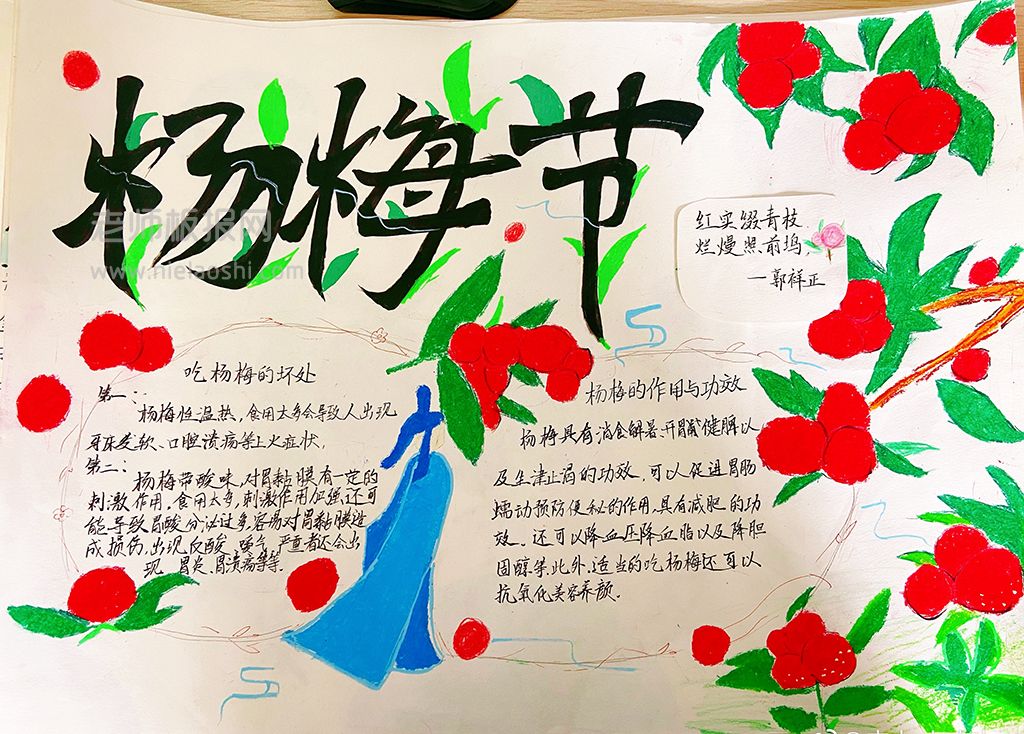 杨梅节
老师板报网
红实缀青枝,
烂熳照前坞,
—郭祥正
吃杨梅的坏处
第一:
杨梅性温热,食用太多会导致人出现
牙床发软、口腔溃疡等上火症状,
第二:
杨梅带酸味,对胃黏膜有一定的
刺激作用,食用太多,刺激作用加强,还可
能导致胃酸分泌过多,容易对胃黏膜造
成损伤,出现反酸、嗳气,严重者还会出
现 胃炎、胃溃疡等等.
杨梅的作用与功效
杨梅具有消食解暑、开胃健脾以
及生津止渴的功效,可以促进胃肠
蠕动预防便秘的作用,具有减肥的功
效,还可以降血压降血脂以及降胆
固醇等,此外,适当的吃杨梅还可以
抗氧化美容养颜.